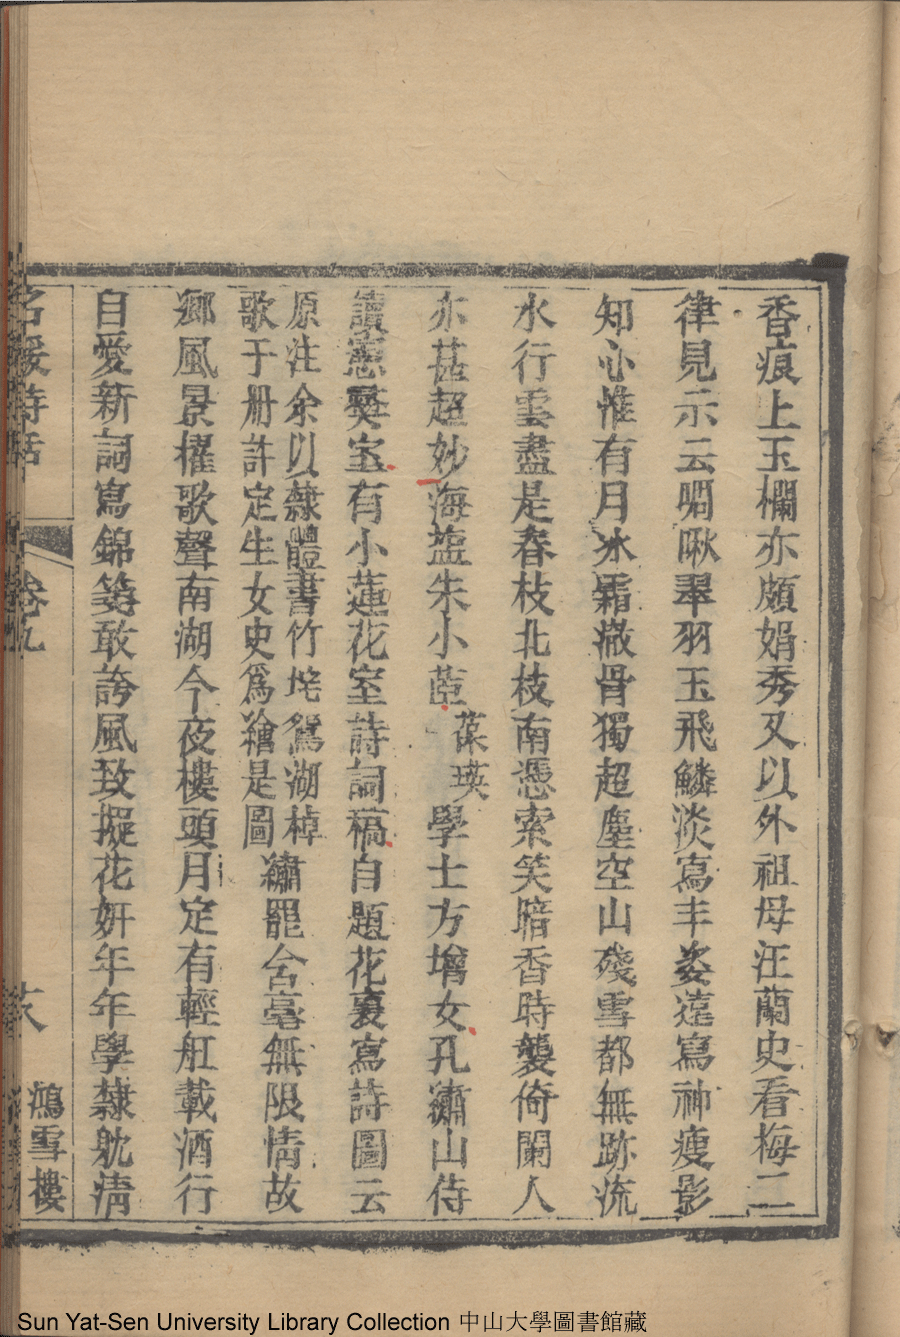 香痕上玉欄亦頗娟秀又以外祖母汪蘭史看梅二
律見示云啁啾翠羽玉飛鱗淡寫丰姿遠寫神瘦影
知心惟有月冰霜澈骨獨超塵空山殘雪都無跡流
水行雲盡是春枝北枝南憑索笑暗香時襲倚闌人
亦甚超妙海盐朱小茝葆瑛學士方增女孔繡山侍
讀憲彝室有小蓮花室詩詞稿自題花裏寫詩圖云
原注余以隸體書竹垞鴛湖棹
歌于册許定生女史爲繪是圖
繡罷含毫無限情故
鄉風景櫂歌聲南湖今夜樓頭月定有輕舡載酒行
自愛新詞寫錦箋敢誇風致擬花妍年年學隸躭清
名媛詩話
卷九
鴻雪樓
Sun Yat-Sen University Library Collection 中山大學圖書館藏